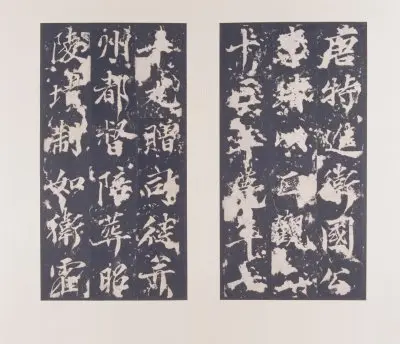 唐特進衛國公
靖以貞觀
十三年薨年七
十九贈司徒并
州都督陪葬昭
陵墳制如衛霍